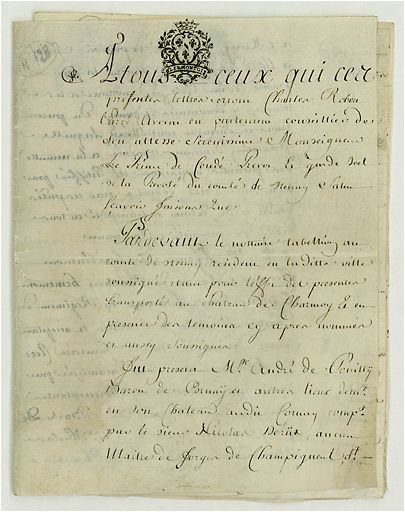 A tous ceux qui ces
presentes lettres verront Charles Robert
avocat en parlement conseiller de
Son altesse Serenissime Monseigneur
Le Prince de Condé Prevost et garde scel
de la Prevoté du comté de
Scavoir faisons que
Pardevant le nottaire tabellion au
comté de resident en laditte ville
soussigné etant pour l'effet des presentes
transporté au chateau de Charmoy et en
presence des temoins cy apres nommés
et aussy soussignés
Fut present Mre André de Pouilly
Baron de Cornay et autres lieux demt
en son Chateau audit Cornay compt
par le sieur Nicolas ancien
Maitre de forges de Champigneul dt